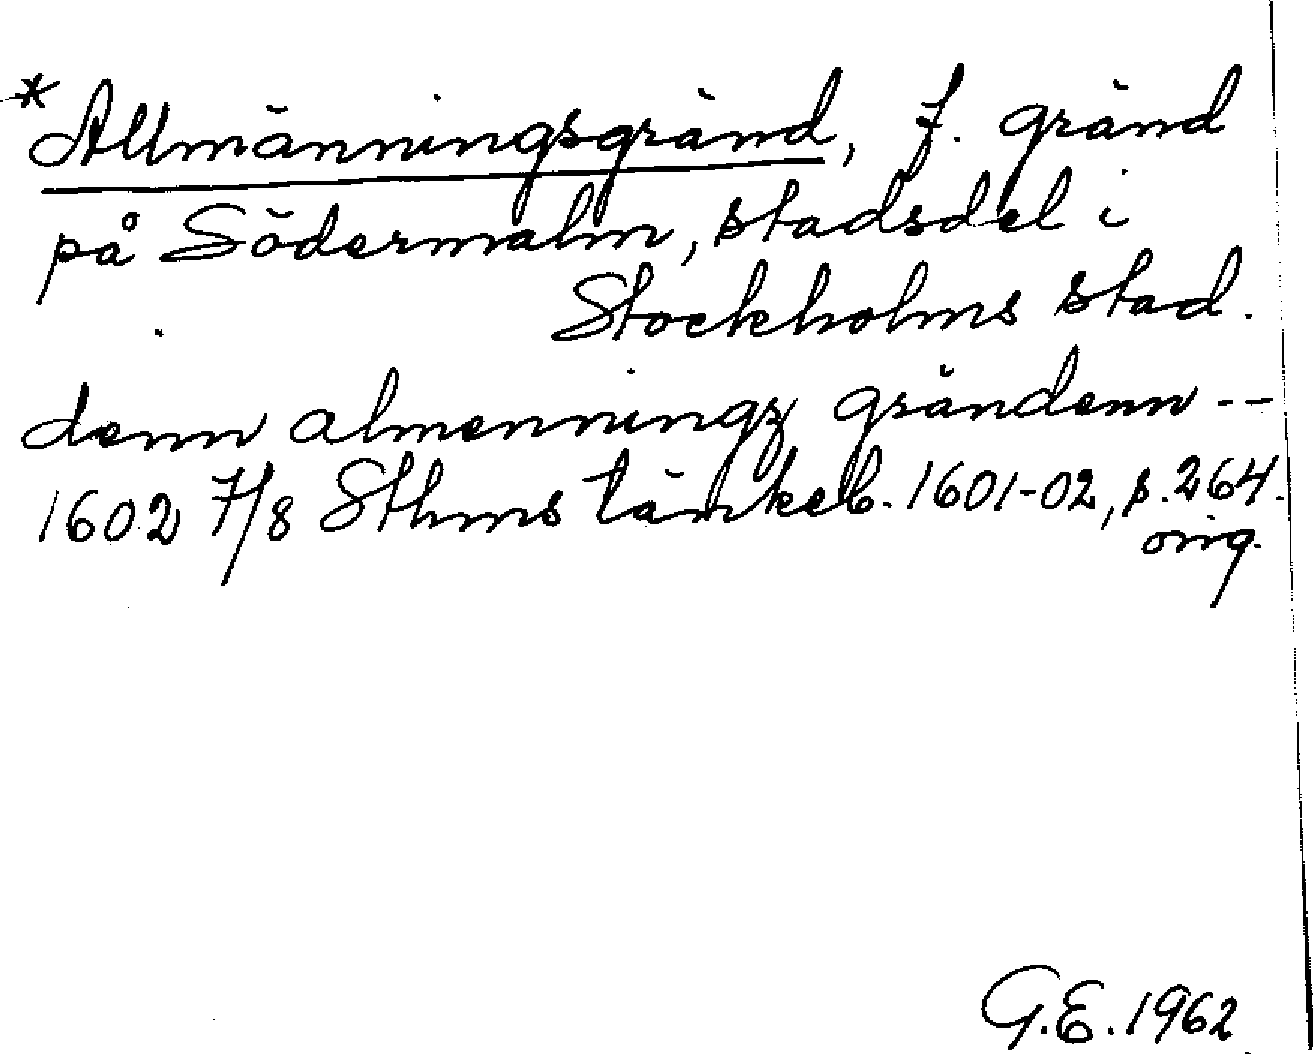 *Allmänningsgränd, f. gränd
på Södermalm, stadsdel i
Stockholms stad.
denn almenningz grändenn --
1602 7/8 Sthms tämkeb. 1601-02, s. 264.
orig.
G.E. 1962